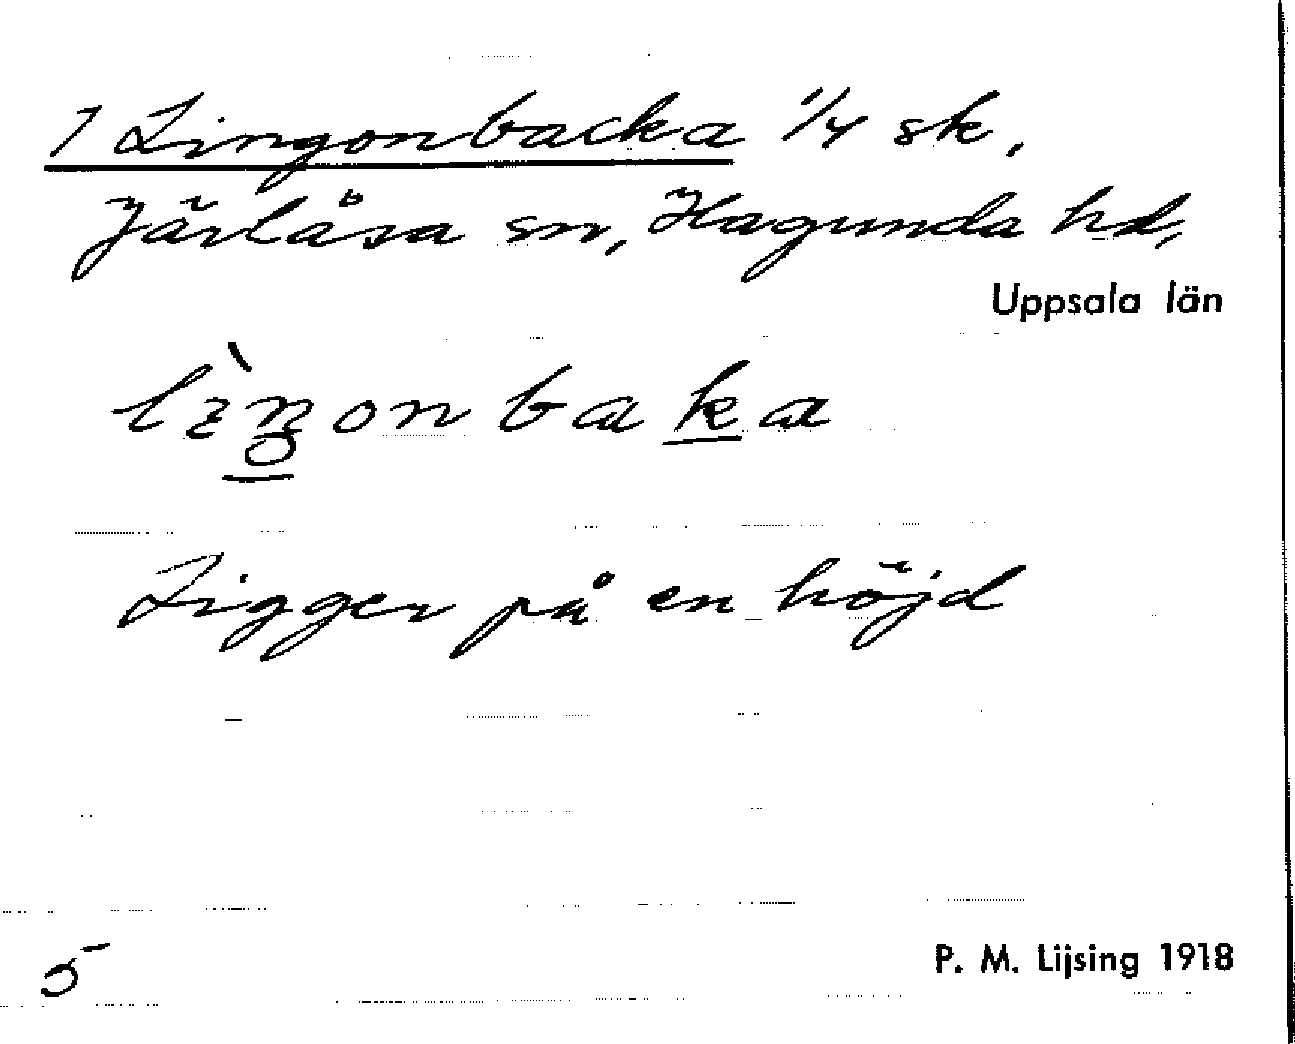 1 Lingonbacka 1/4 sk,
Järlåsa sn, Hagunda hd,
Uppsala län
lìŋonbaka
Ligger på en höjd
5
P. M. Lijsing 1918